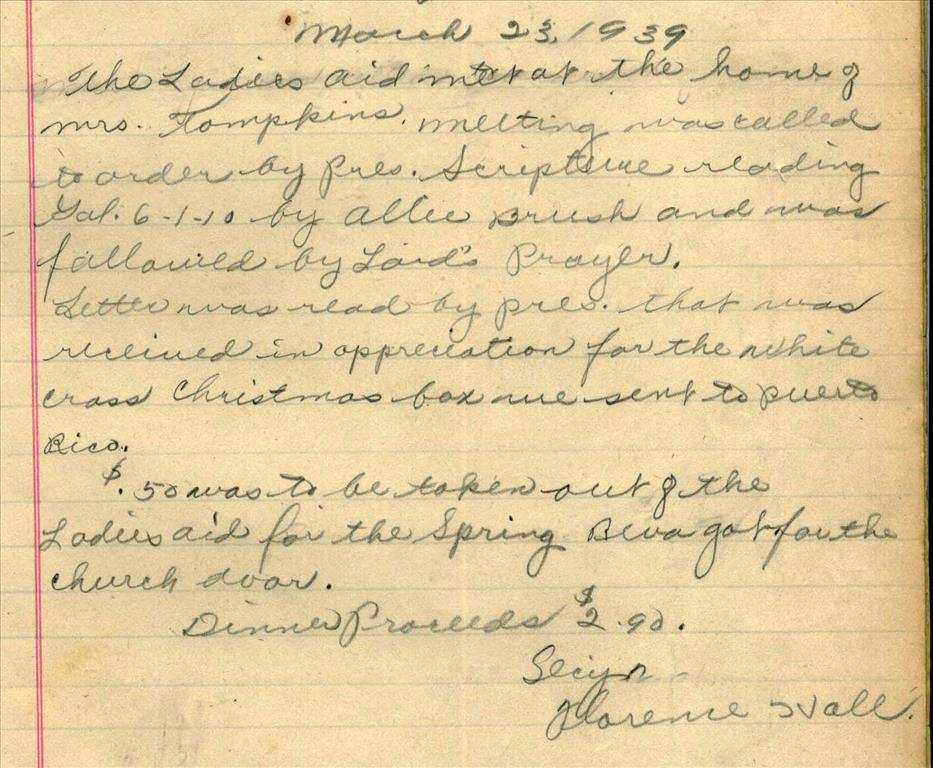 March 23, 1939
The Ladies aid met at the home of
mrs. Tompkins. meeting was called
to order by Pres. Scripture reading
Gal. 6-1-10 by Allie Brush and was
followed by Lord's Prayer.
Letter was read by pres. that was
received in appreciation for the white
cross Christmas box we sent to puerto
Rico.
$.50 was to be taken out of the
Ladies aid for the Spring Beva got for the
church door.
Dinner Proceeds $2.90.
Sec'y
Florence Wall.